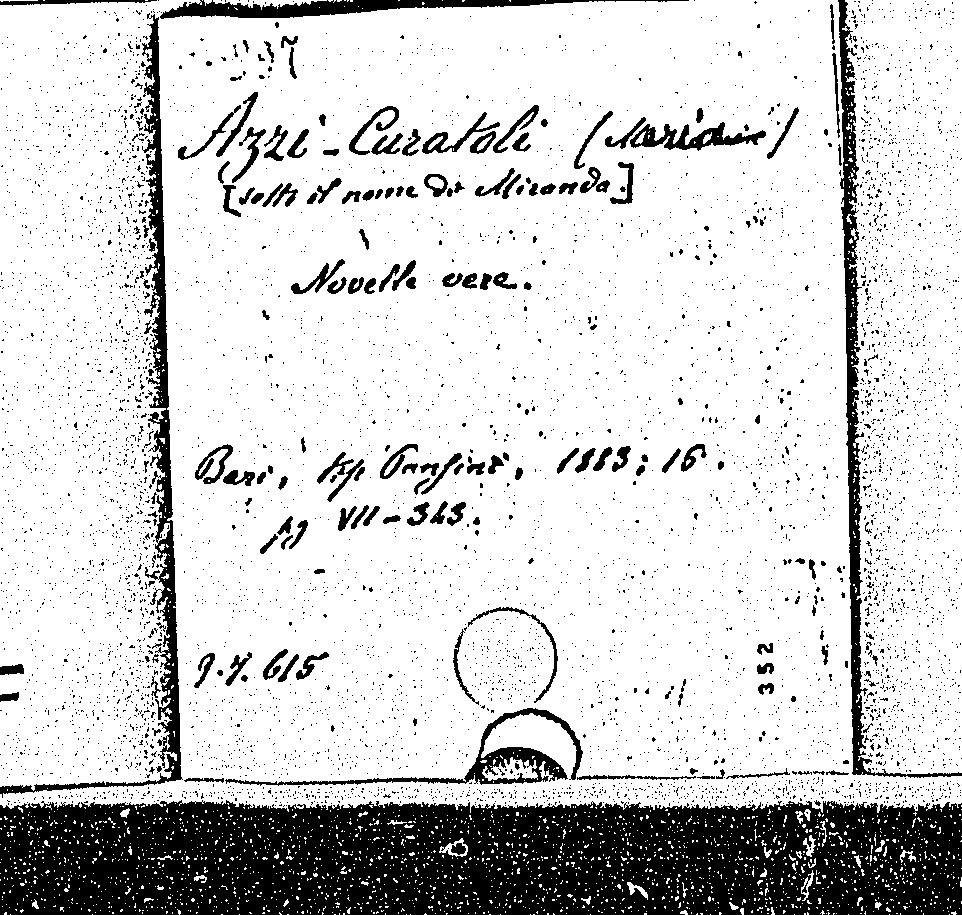 997
Azzi-Curatoli
[sotto il nome di Miranda.]
Novelle vere.
Bari, tip Pansini, 1883; 16.
pg VII-343.
9.7.615
352